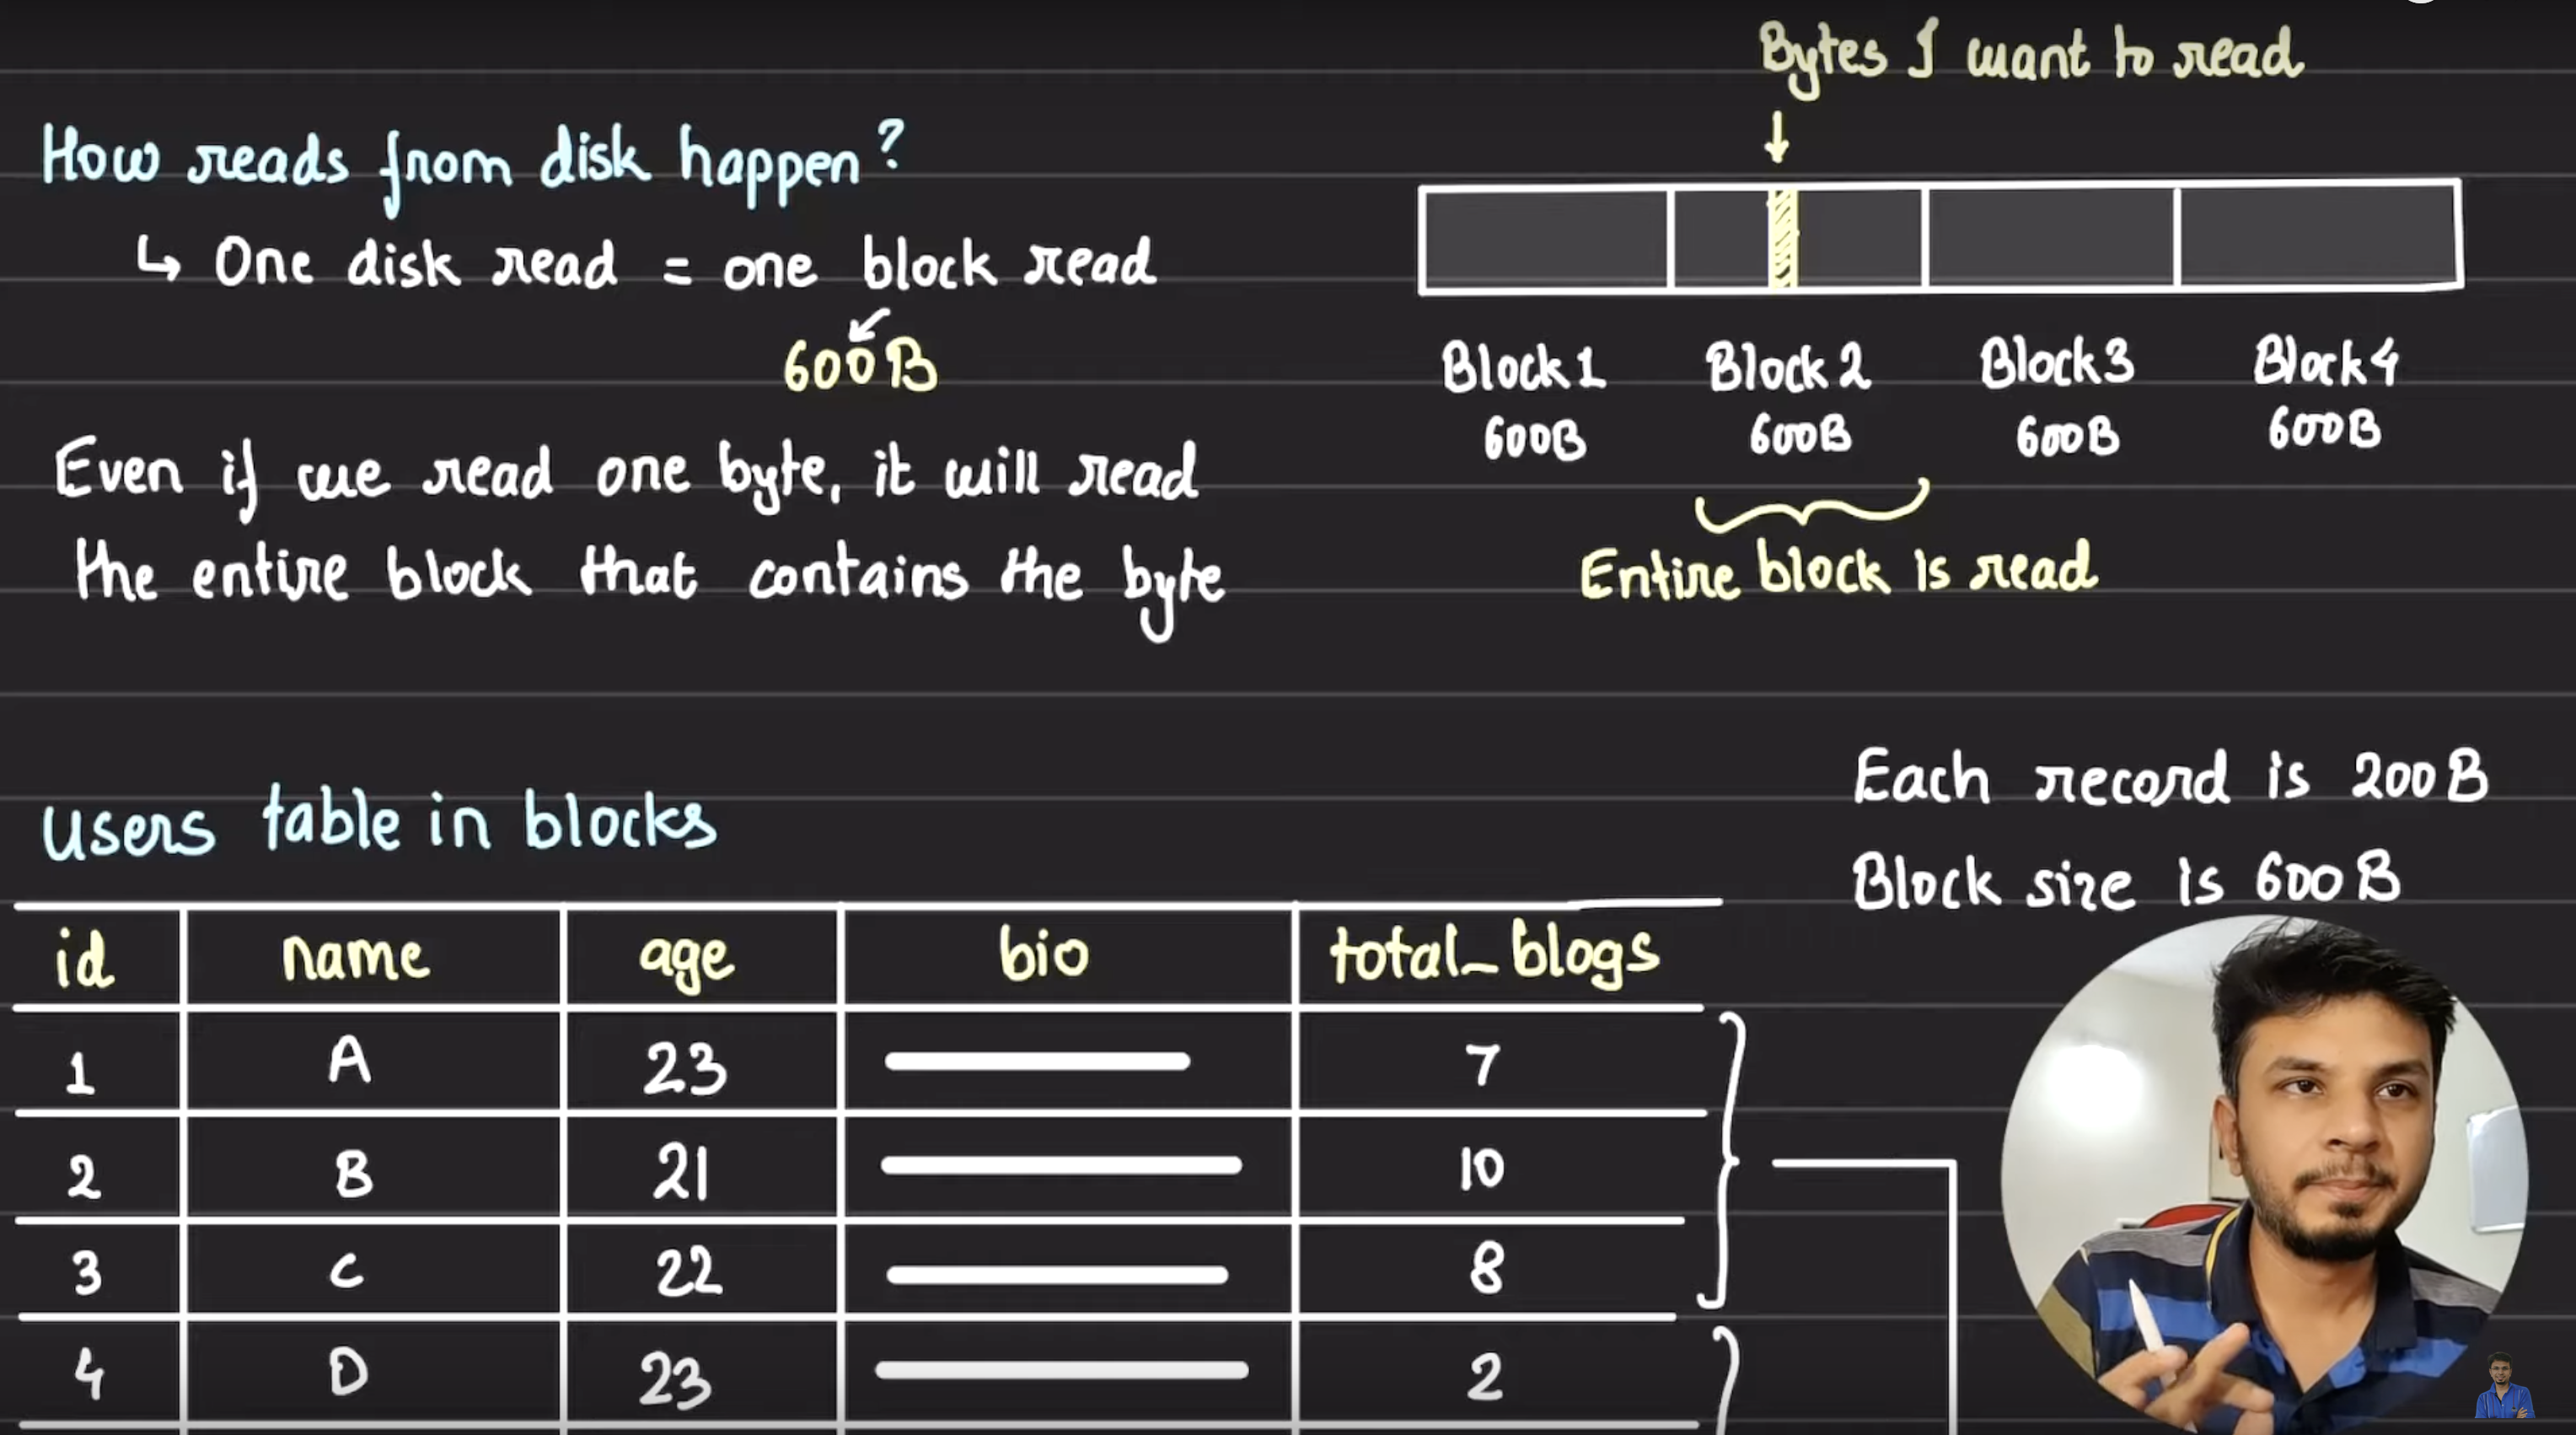 Bytes I want to read
How reads from disk happen?
↳ One disk read = one block read
600B
Even if we read one byte, it will read
the entire block that contains the byte
Block 1 Block 2 Block 3 Block 4
600B 600B 600B 600B
Entire block is read
Users table in blocks
Each record is 200B
Block size is 600B
id name age bio total_blogs
1 A 23 7
2 B 21 10
3 C 22 8
4 D 23 2